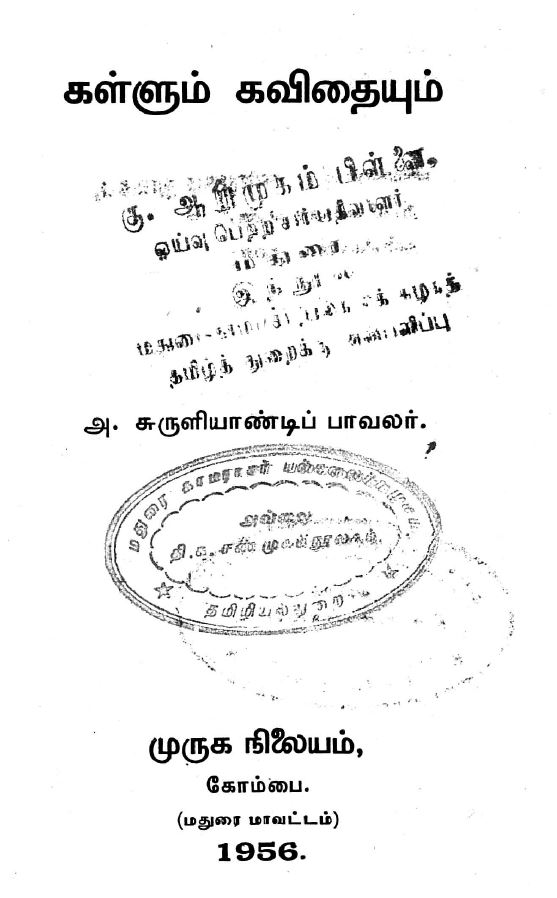 கள்ளும் கவிதையும்
கு. ஆறுமுகம் பிள்ளை,
ஓய்வு பெற்ற சார்பதிவாளர்
மதுரை
இந்நூல்
மதுரை கழகத்
தமிழ்த் துறைக்கு அன்பளிப்பு
அ. சுருளியாண்டிப் பாவலர்.
மதுரை காமராசர் பல்கலைக்கழகம்
அவ்வை
தி.க. சண்முகம் நூலகம்
தமிழியல்துறை
முருக நிலையம்,
கோம்பை.
(மதுரை மாவட்டம்)
1956.